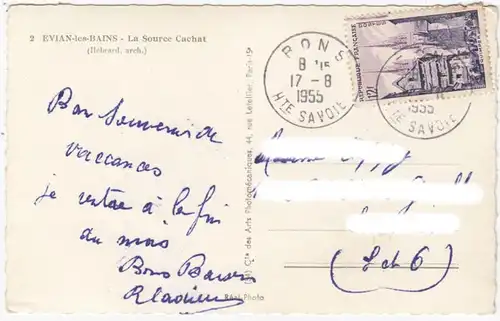 2 EVIAN-les-BAINS - La Source Cachat
(Hébrard, arch.)
Bon Souvenir de
vaccances
je rentre à la fin
du mois
Bons Baisers
(3) Cie des Arts Photomécaniques, 44, rue Letellier, Paris-15
Réal-Photo
PONS
8 H 15
17-8
1955
HTE SAVOIE
REPUBLIQUE FRANÇAISE
12F
1955
HTE SAVOIE
(S et O)